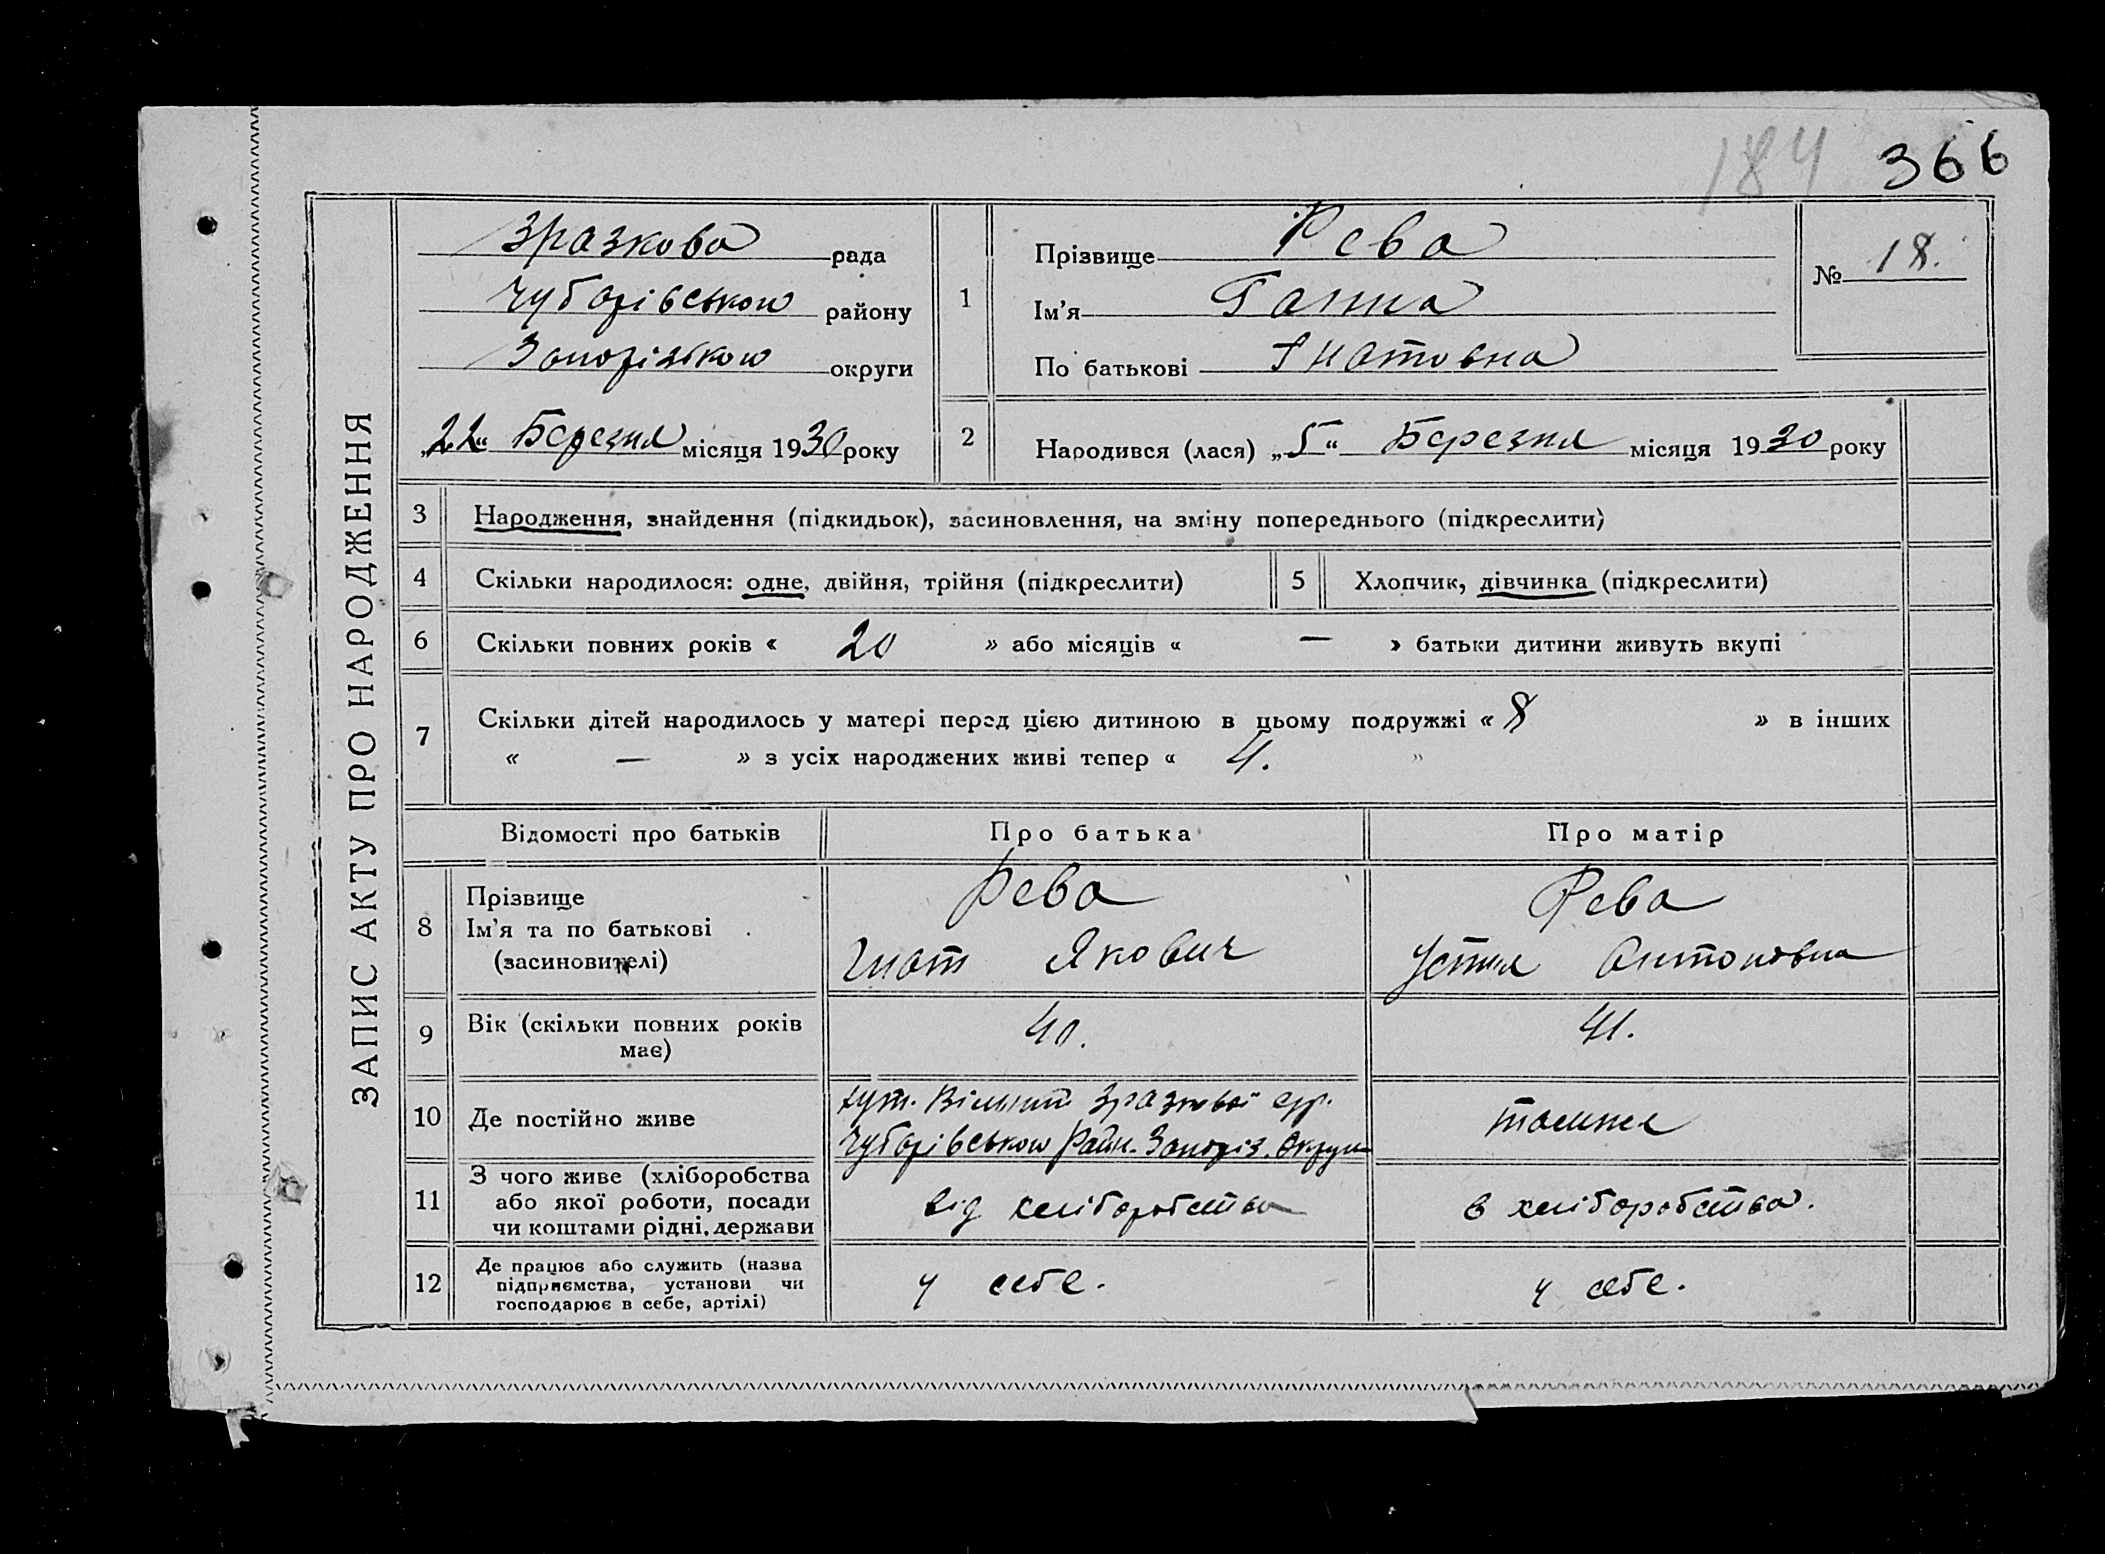 184 366
ЗАПИС АКТУ ПРО НАРОДЖЕННЯ
Зразкова рада
Чубарівського району
Запорізького округи
„22“ Березня місяця 1930 року
1
Прізвище Рева
Ім’я Ганна
По батькові Гнатовна
№ 18.
2
Народився (лася) „5“ Березня місяця 1930 року
3 Народження, знайдення (підкидьок), засиновлення, на зміну попереднього (підкреслити)
4 Скільки народилося: одне, двійня, трійня (підкреслити) 5 Хлопчик, дівчинка (підкреслити)
6 Скільки повних років « 20 » або місяців « — » батьки дитини живуть вкупі
7 Скільки дітей народилось у матері перед цією дитиною в цьому подружжі « 8 » в інших
« — » з усіх народжених живі тепер « 4. »
Відомості про батьків Про батька Про матір
8 Прізвище
Ім’я та по батькові
(засиновителі)
Рева
Гнат Якович
Рева
Устия Антоновна
9 Вік (скільки повних років
має)
40.
41.
10 Де постійно живе
хут. Вільний Зразкової с/р.
Чубарівського Райн. Запоріз. Округи
тамже
11 З чого живе (хліборобства
або якої роботи, посади
чи коштами рідні, держави
від хліборобства
в хліборобства.
12 Де працює або служить (назва
підприємства, установи чи
господарює в себе, артілі)
у себе.
у себе.